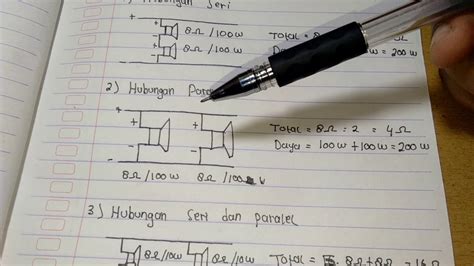 1) Hubungan Seri
+
8Ω /100 W
8Ω /100 W
-
Total = 8
W = 200 W
2) Hubungan Para
+
+ +
- -
-
8Ω /100 W 8Ω /100 W
Total = 8Ω : 2 = 4Ω
Daya = 100W + 100W = 200 W
3) Hubungan seri dan paralel
+
8Ω /10W 8Ω /10W
Total = 8Ω + 8Ω = 16Ω